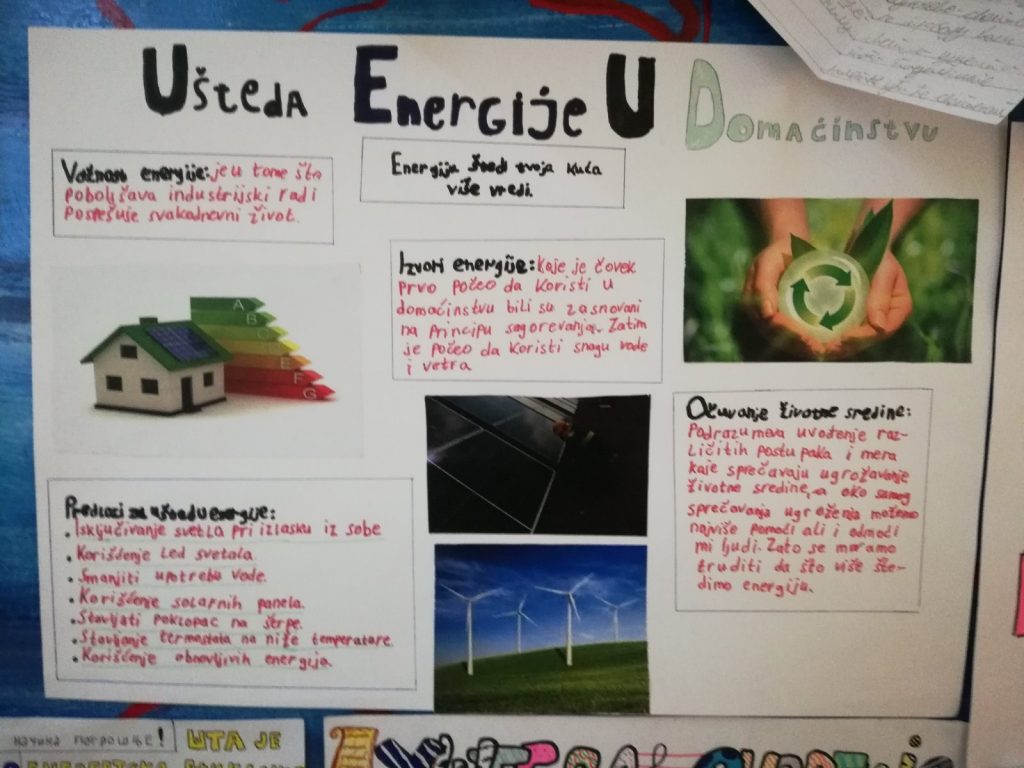 UŠTEDA ENERGIJE U DOMAĆINSTVU
Važnost energije: je u tome što
poboljšava industrijski rad i
pospešuje svakadnevni život.
Energija štedi tvoja kuća
više vredi.
Izvori energije: koje je čovek
prvo počeo da koristi u
domaćinstvu bili su zasnovani
na principu sagorevanja. Zatim
je počeo da koristi snagu vode
i vetra
A
B
E
F
G
Očuvanje životne sredine:
Podrazumeva uvođenje raz-
ličitih postupaka i mera
koje sprečavaju ugrožavanje
životne sredine, a oko samog
sprečavanja ugroženja možemo
najviše pomoći ali i odmoći
mi ljudi. Zato se moramo
truditi da što više šte-
dimo energiju.
Predlozi za uštedu energije:
• Isključivanje svetla pri izlasku iz sobe
• Korišćenje Led svetala.
• Smanjiti upotrebu vode.
• Korišćenje solarnih panela.
• Stavljati poklopac na šerpe.
• Stavljanje termostata na niže temperature.
• Korišćenje obnovljivih energija.
НАЧИНА ПОТРОШЊЕ!
ШТА ЈЕ